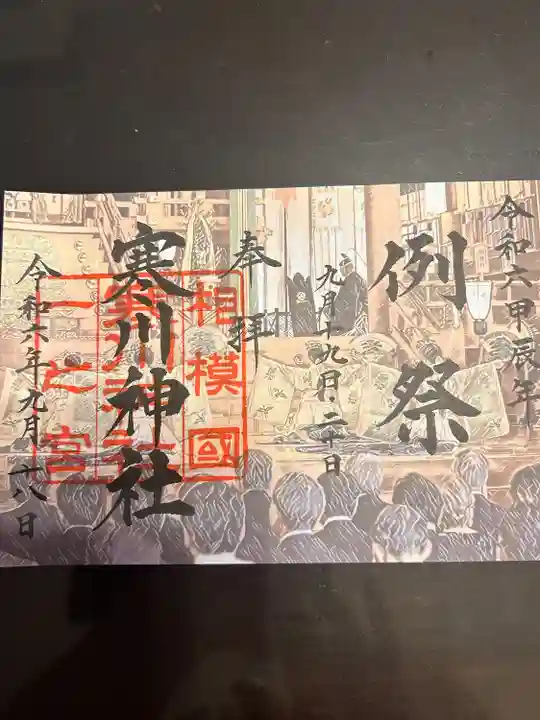 令和六甲辰年
例祭
九月十九日・二十日
奉拝
寒川神社
相模國
寒川神社
一之宮
令和六年九月十八日